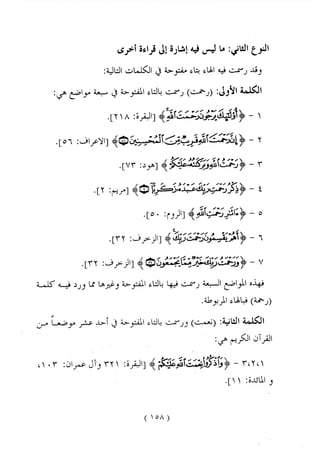 النوع الثاني: ما ليس فيه إشارة إلى قراءة أخرى
وقد رسمت فيه الهاء بتاء مفتوحة في الكلمات التالية:
الكلمة الأولى: (رحمت) رسمت بالتاء المفتوحة في سبعة مواضع هي:
١ - ﴿أُوْلَٰٓئِكَ يَرۡجُونَ رَحۡمَتَ ٱللَّهِ﴾ [البقرة: ٢١٨].
٢ - ﴿إِنَّ رَحۡمَتَ ٱللَّهِ قَرِيبٞ مِّنَ ٱلۡمُحۡسِنِينَ﴾ [الأعراف: ٥٦].
٣ - ﴿رَحۡمَتُ ٱللَّهِ وَبَرَكَٰتُهُۥ عَلَيۡكُمۡ﴾ [هود: ٧٣].
٤ - ﴿ذِكۡرُ رَحۡمَتِ رَبِّكَ عَبۡدَهُۥ زَكَرِيَّآ﴾ [مريم: ٢].
٥ - ﴿ءَاثَٰرِ رَحۡمَتِ ٱللَّهِ﴾ [الروم: ٥٠].
٦ - ﴿أَهُمۡ يَقۡسِمُونَ رَحۡمَتَ رَبِّكَ﴾ [الزخرف: ٣٢].
٧ - ﴿وَرَحۡمَتُ رَبِّكَ خَيۡرٞ مِّمَّا يَجۡمَعُونَ﴾ [الزخرف: ٣٢].
فهذه المواضع السبعة رسمت فيها بالتاء المفتوحة وغيرها مما ورد فيه كلمة
(رحمة) فبالهاء المربوطة.
الكلمة الثانية: (نعمت) ورسمت بالتاء المفتوحة في أحد عشر موضعاً من
القرآن الكريم هي:
٣،٢،١ - ﴿وَٱذۡكُرُواْ نِعۡمَتَ ٱللَّهِ عَلَيۡكُمۡ﴾ [البقرة: ٣٢١ وآل عمران: ١٠٣،
و المائدة: ١١].
(١٥٨)